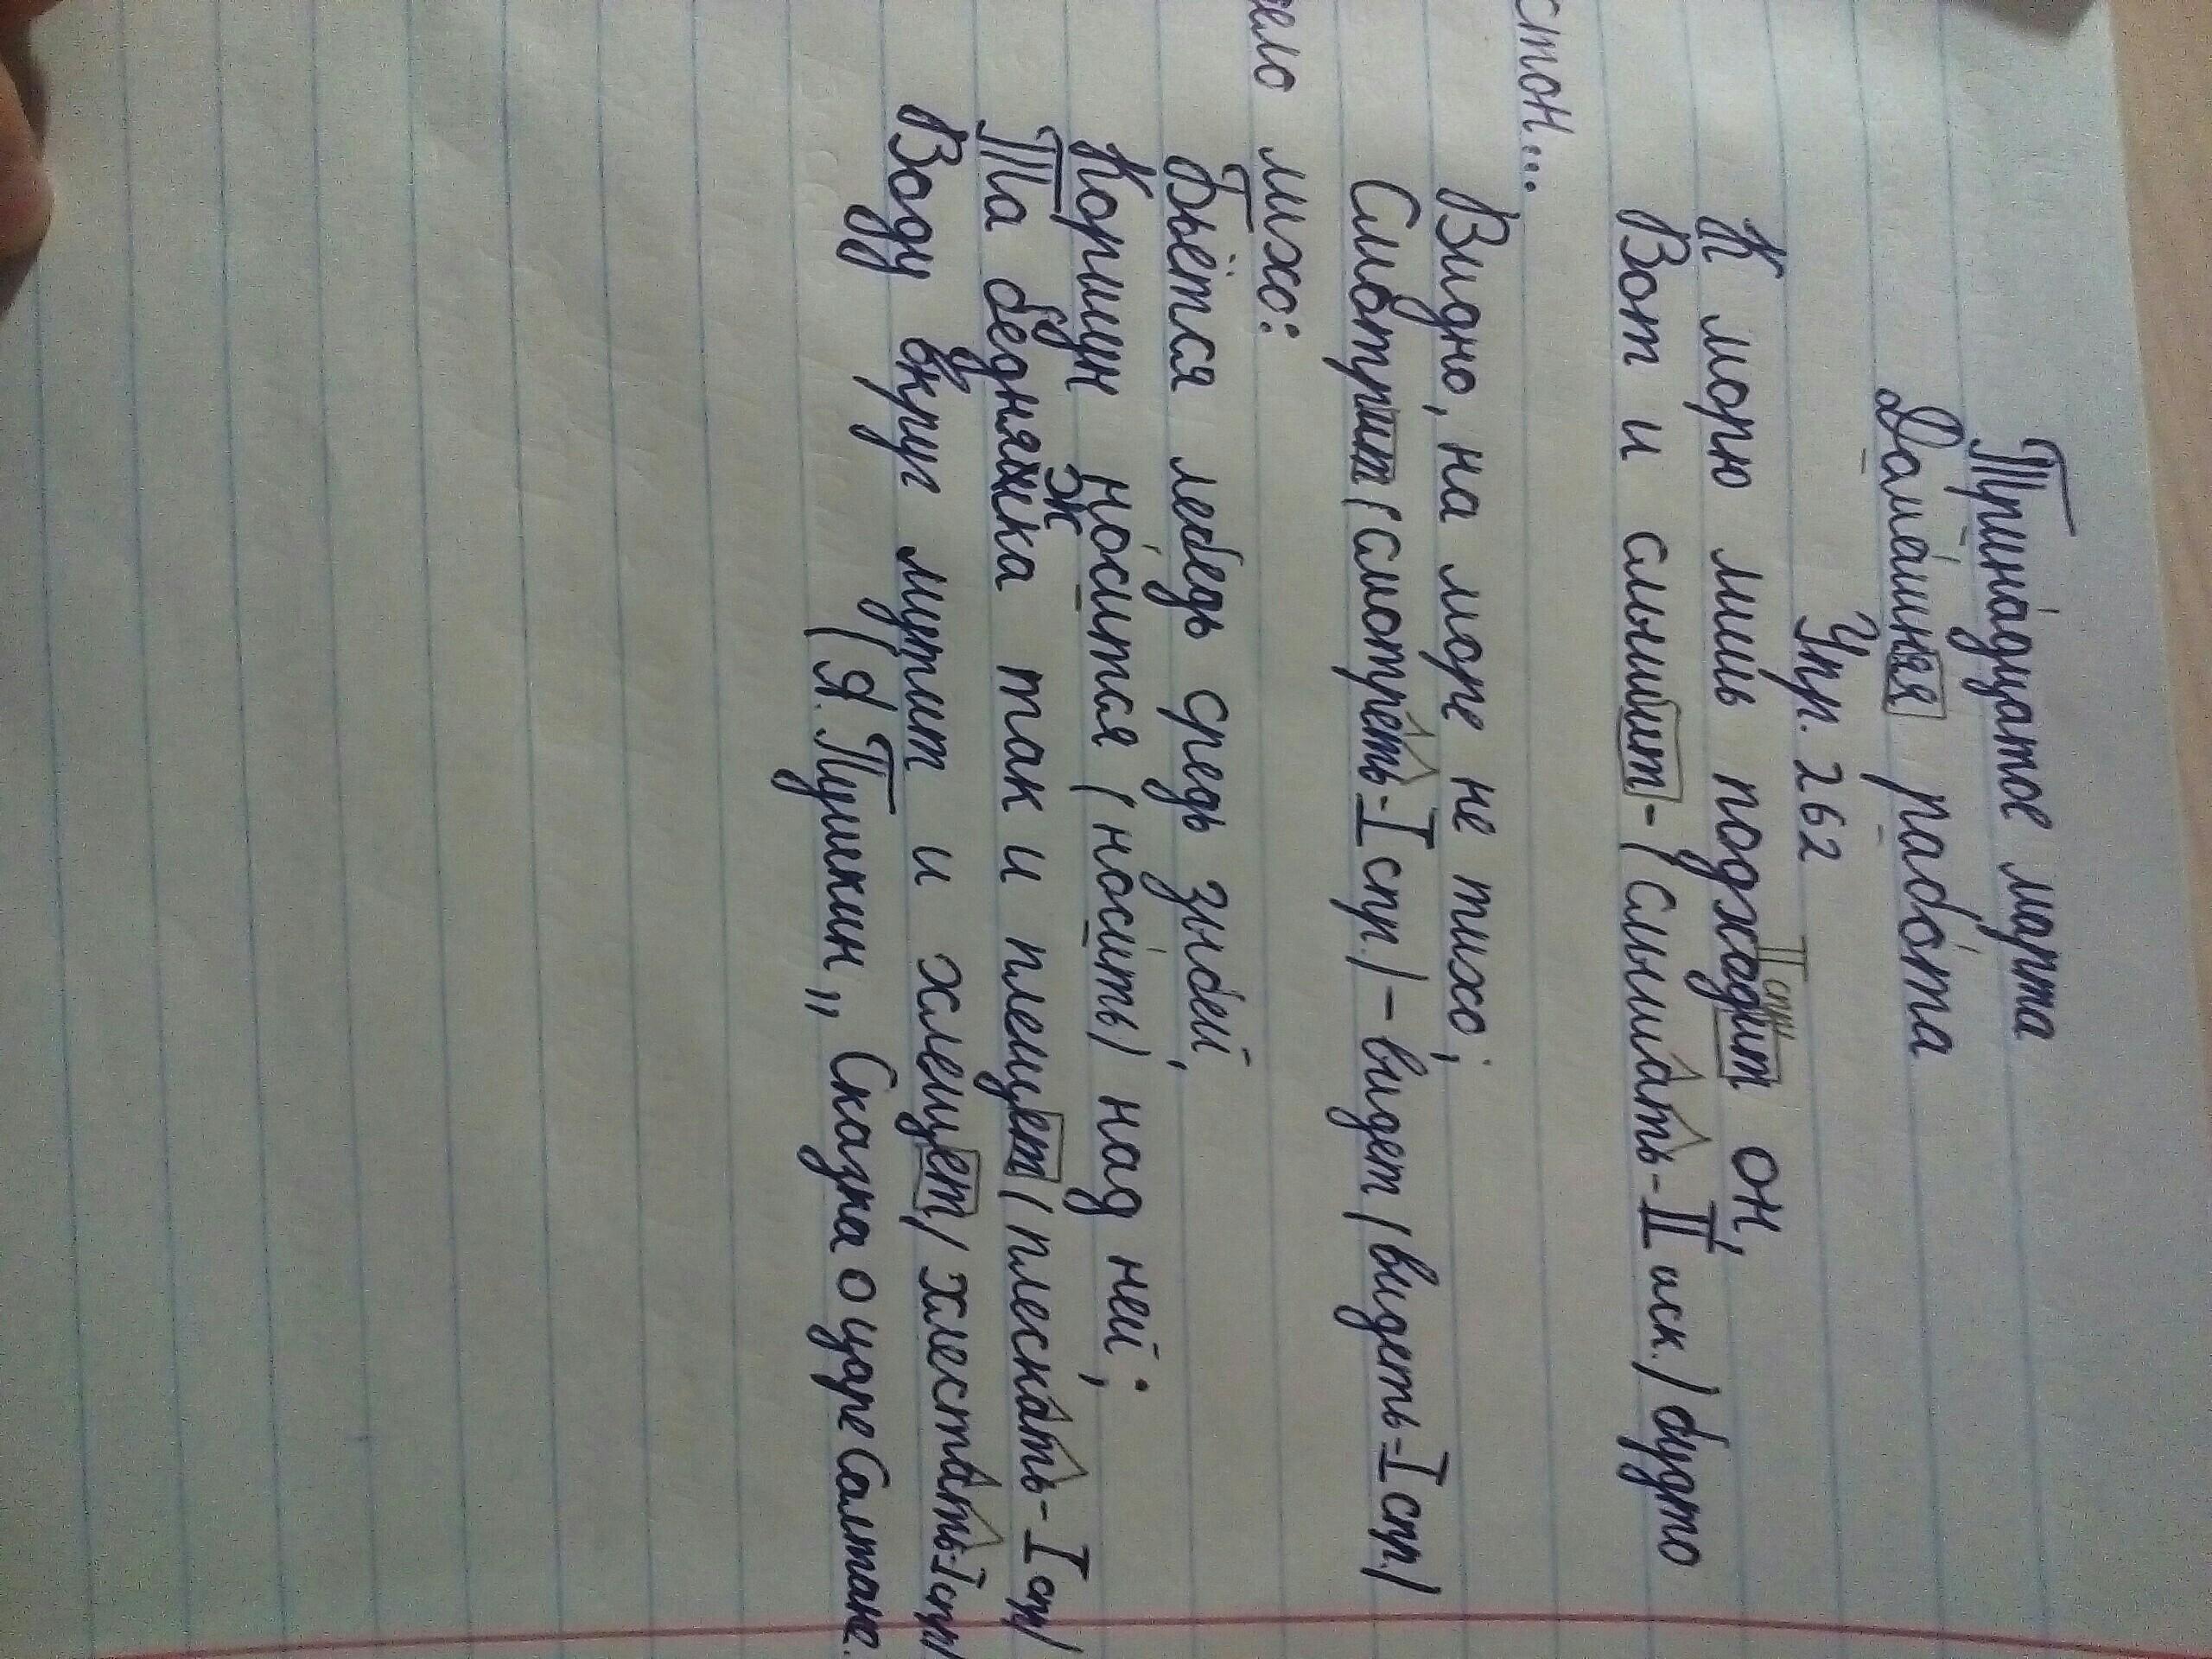 Тринадцатое марта
Домашняя работа
Упр. 262
К морю лишь подходит он,
II спр.
Вот и слышит-(слышать-II иск.) будто
стон...
Видно, на море не тихо;
Смотрит (смотреть-I спр.)-видет (видеть-I спр.)
дело лихо:
Бьётся лебедь средь зыбей,
Коршун носится (носить) над ней;
Та бедняжка так и плещет (плескать-I спр)
Воду вкруг мутит и хлещет (хлестать-I спр)
(Я. Пушкин„ Сказка о царе Салтане.